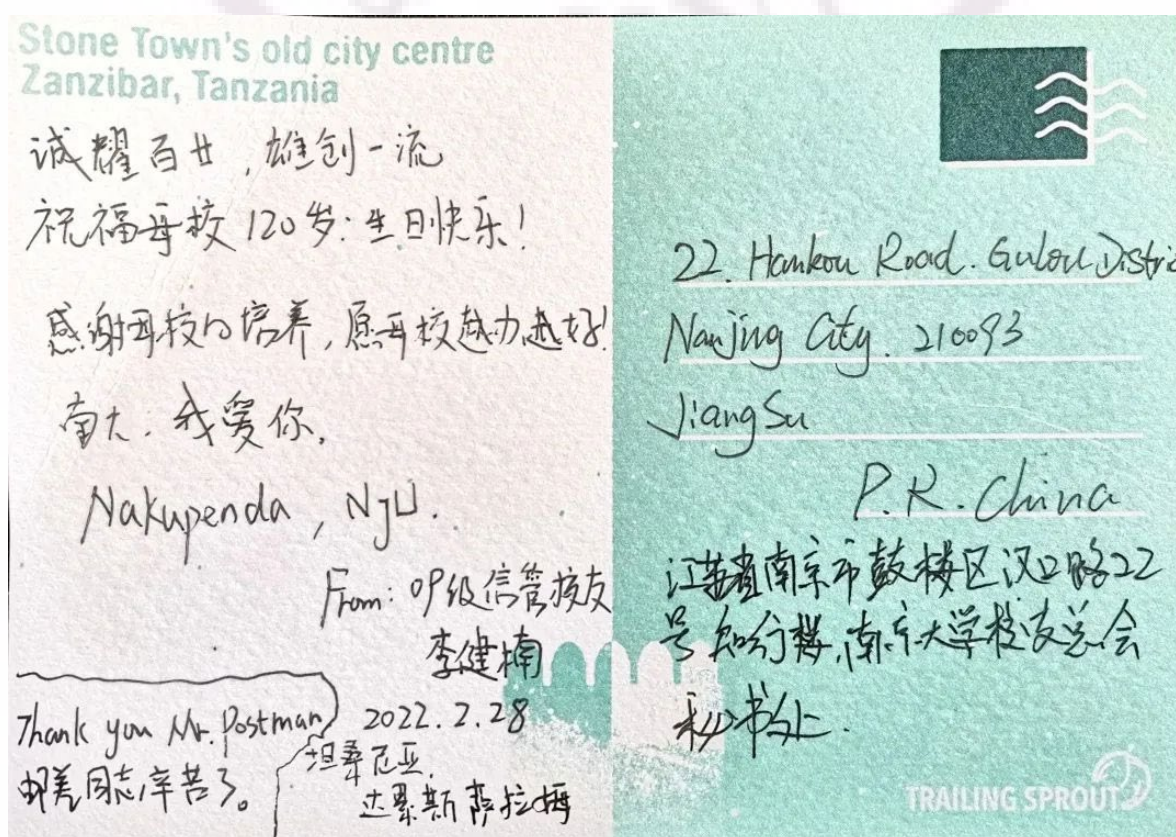 Stone Town's old city centre
Zanzibar, Tanzania
诚耀百廿，雄创一流
祝福母校120岁：生日快乐！
感谢母校的培养，愿母校越办越好！
南大．我爱你．
Nakupenda, NJU.
From: 09级信管校友
李健楠
2022.2.28
坦桑尼亚．
达累斯萨拉姆
Thank you Mr. Postman
邮差同志辛苦了。
22. Hankou Road. Gulou Distric
Nanjing City. 210093
JiangSu
P.R. China
江苏省南京市鼓楼区汉口路22
号知行楼，南京大学校友总会
秘书处．
TRAILING SPROUT